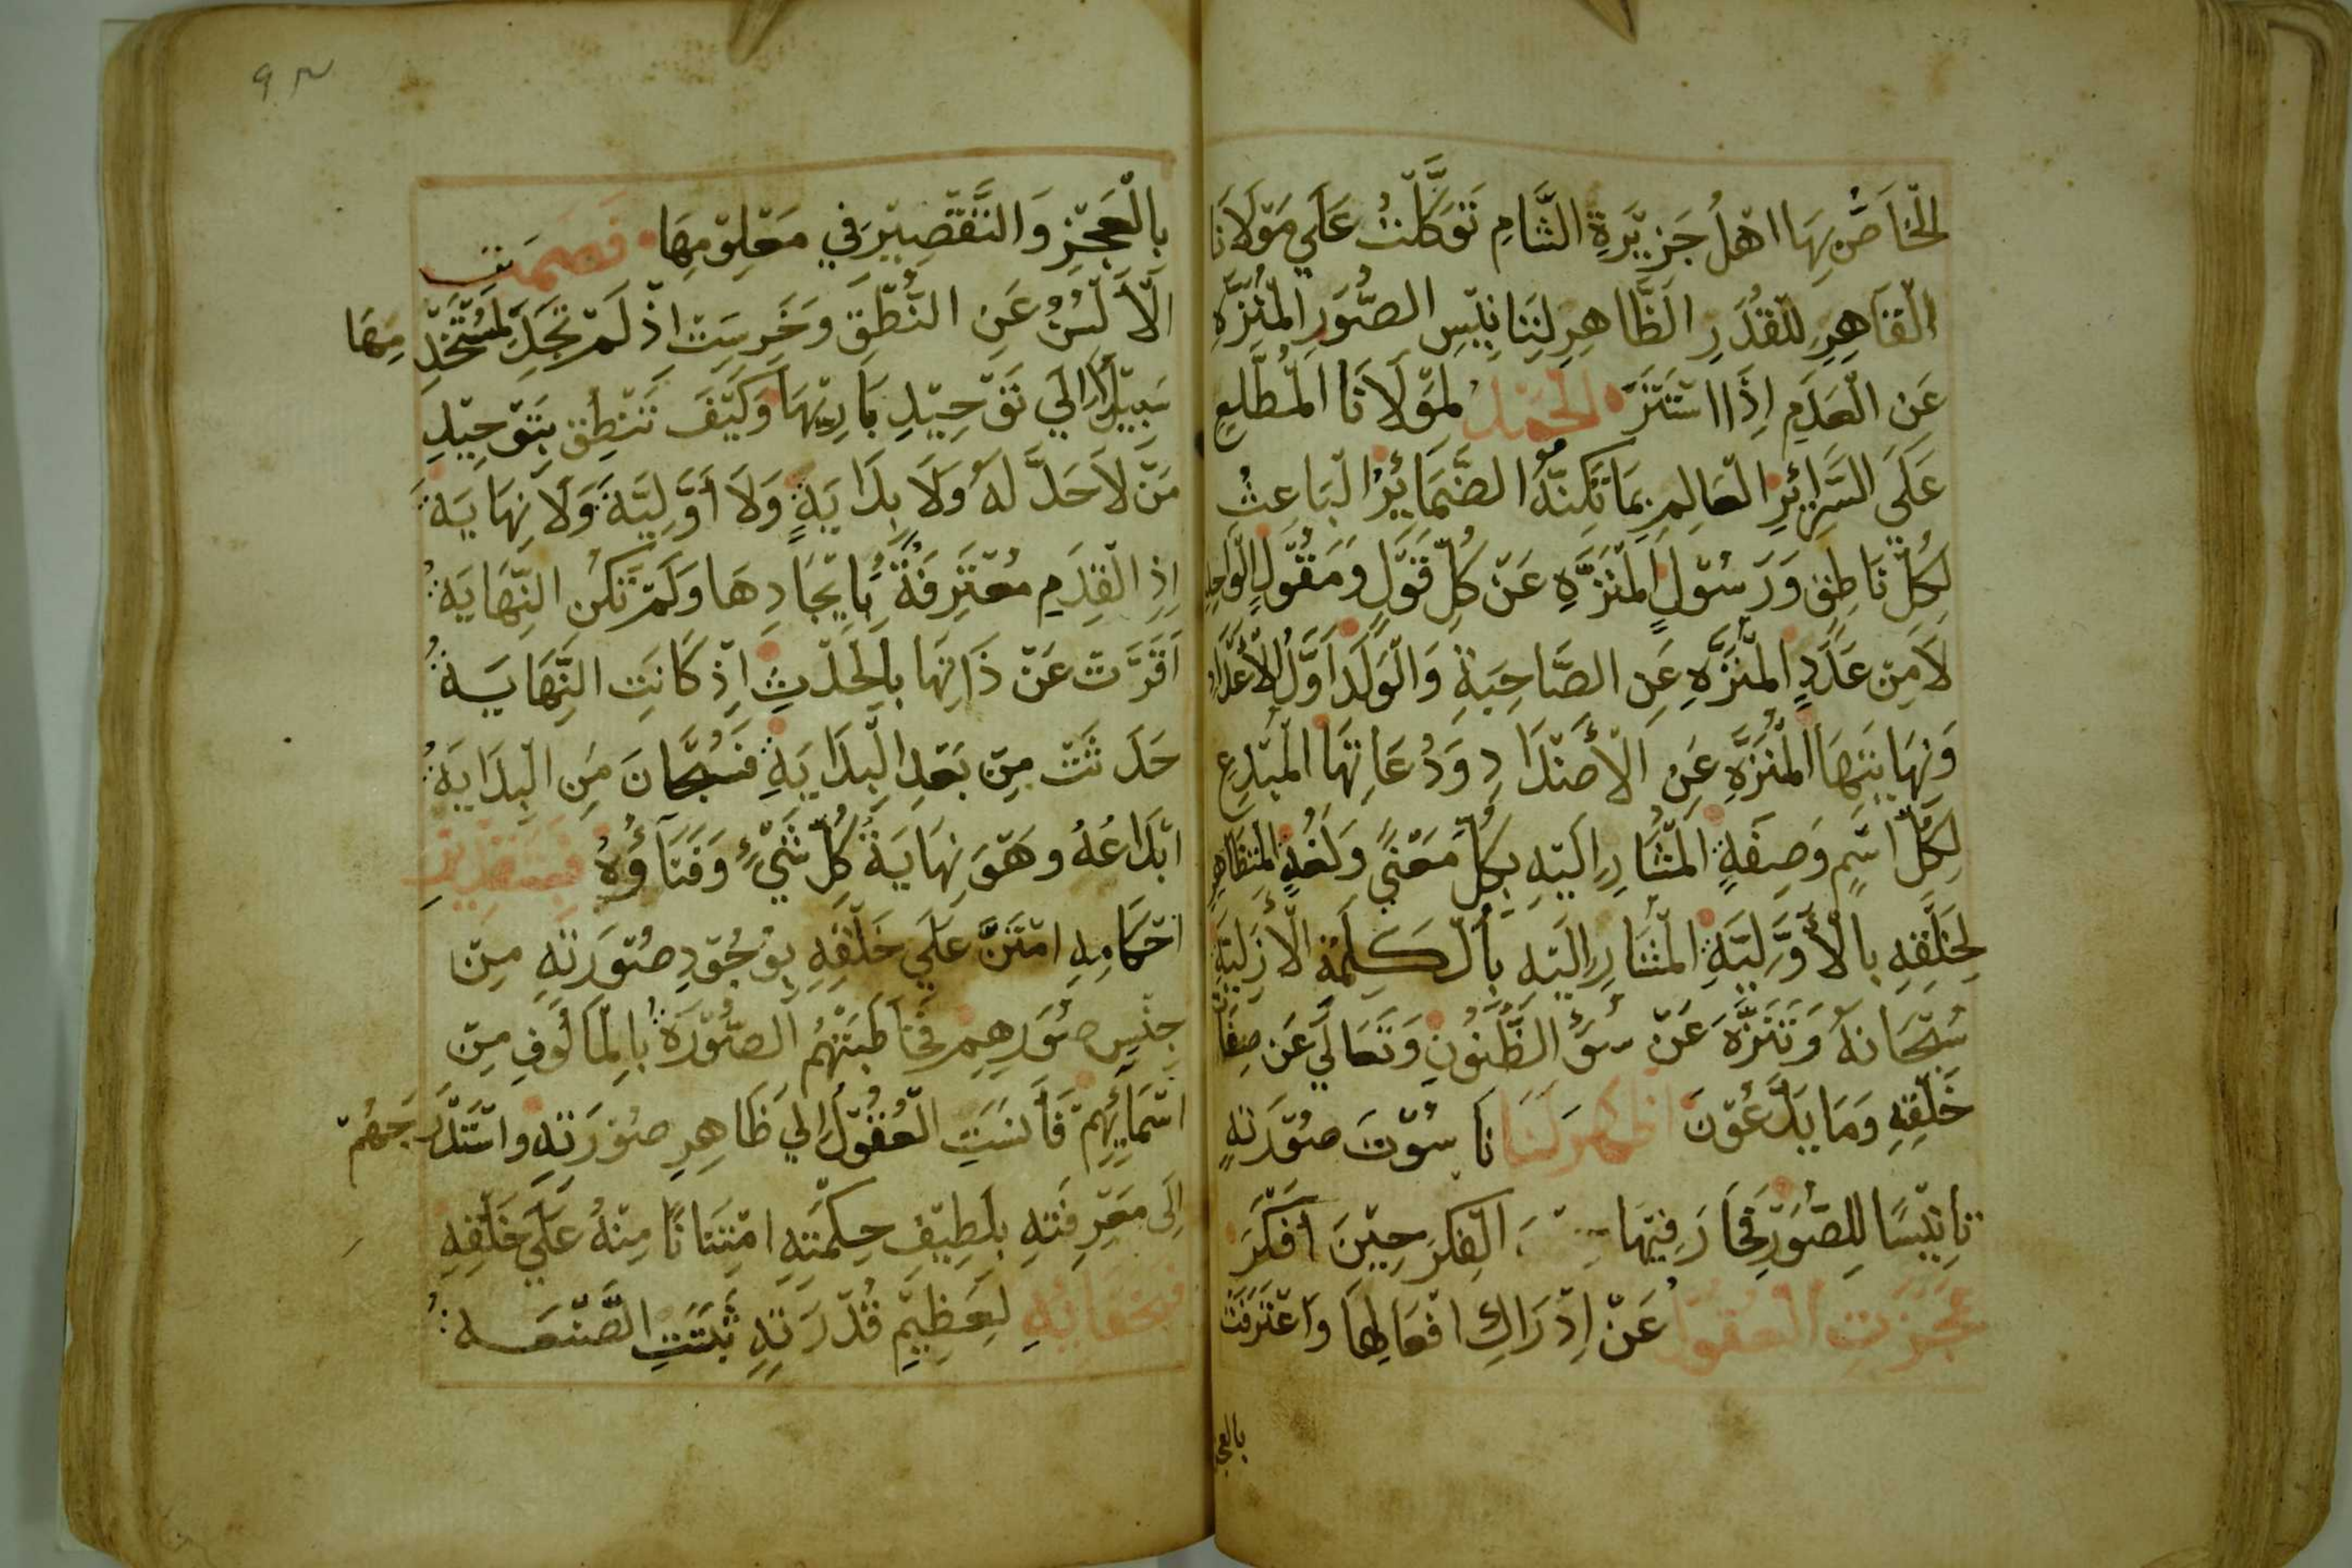 الخاص بها اهل جزيرة الشام توكلت على مولانا
القاهر للقدر الظاهر لتانيس الصور المنزه
عن العدم اذا استتر الحمد لمولانا المطلع
على السرائر العالم بما تكنه الضمائر الباعث
لكل ناطق ورسول المنزه عن كل قول ومقول الواحد
لا من عدد المنزه عن الصاحبة والولد اول الاعداد
ونهايتها المنزه عن الاضداد ودعاتها المبدع
لكل اسم وصفة المشار اليه بكل معنى ولغة المتظاهر
لخلقه بالأولية المشار اليه بالكلمة الأزلية
سبحانه وتنزه عن سو الظنون وتعالى عن صفات
خلقه وما يدعون اظهر لنا ناسوت صورته
تانيسا للصور فحار فيها الفكر حين افكر
عجزت العقول عن إدراك افعالها واعترفت
بالعجز
٩٣
بالعجز والتقصير في معلومها فصمتت
الألسن عن النطق وخرست اذ لم تجد لمستخدمها
سبيلا الي توحيد باريها وكيف تنطق بتوحيد
من لا حد له ولا بداية ولا أولية ولا نهاية
إذ القدم معترفة بايجادها ولم تكن النهاية
اقرت عن ذاتها بالحدث اذ كانت النهاية
حدثت من بعد البداية فسبحان من البداية
ابداعه وهو نهاية كل شيء وفناؤه فبتقدير
احكامه امتن على خلقه بوجود صورته من
جنس صورهم فخاطبتهم الصورة بالمالوف من
اسمائهم فأنست العقول الي ظاهر صورته واستدرجهم
إلى معرفته بلطيف حكمته امتنانا منه علي خلقه
لعظيم قدرته ثبتت الصنعه